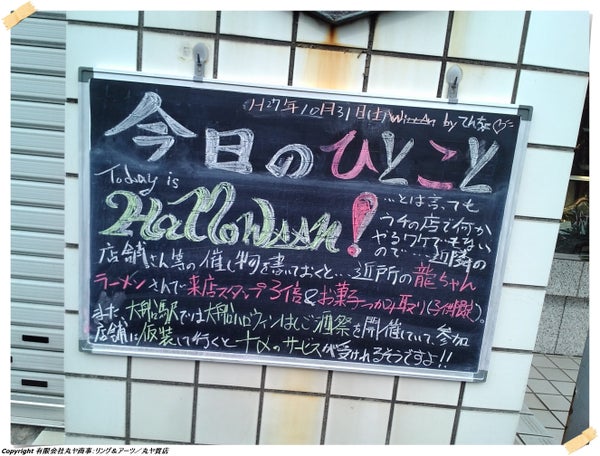 H27年10月31日(土) by てんちょ
今日のひとこと
Today is
Halloween!
…とは言っても
ウチの店で何か
やるワケでもない
ので…近隣の
店舗さん等の催し物を書いておくと…近所の龍ちゃん
ラーメンさんで来店スタンプ3倍&お菓子つかみ取り(子供限定)。
また、大船駅では大船ハロウィンはしご酒祭を開催していて、参加
店舗に仮装して行くと+αのサービスが受けれるそうですよ!!
Copyright 有限会社丸ヤ商事:リング&アーツ/丸ヤ質店